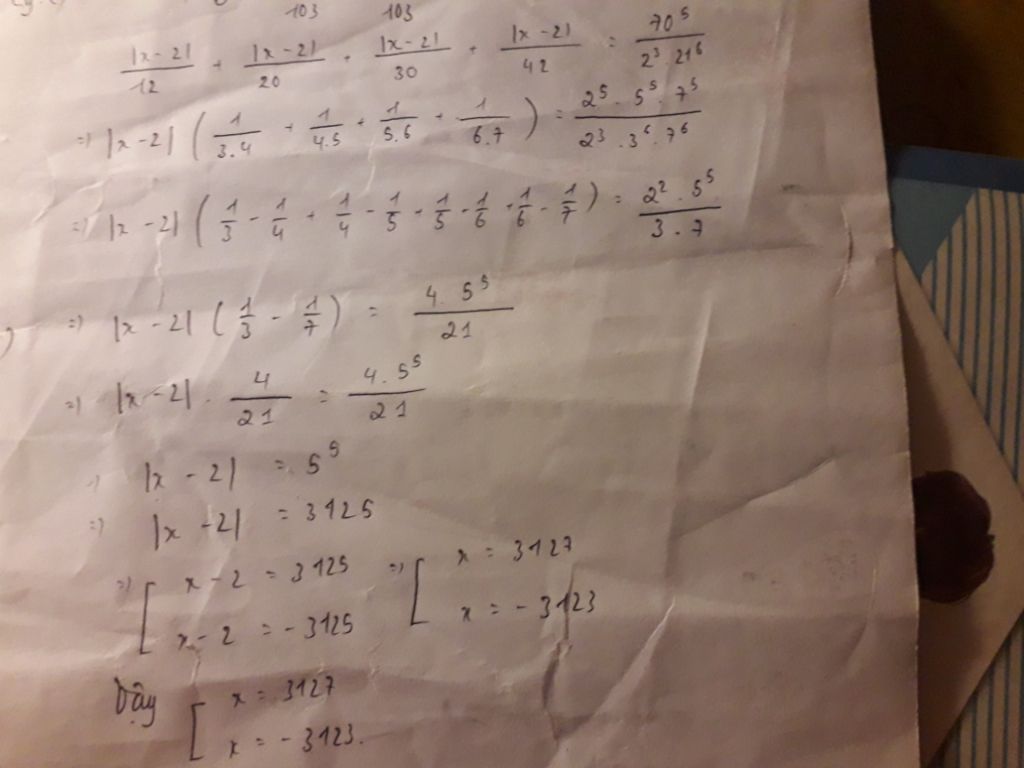 103 103
|x-2|/12 + |x-2|/20 + |x-2|/30 + |x-2|/42 = 70⁵/2³.21⁶
=) |x-2| (1/3.4 + 1/4.5 + 1/5.6 + 1/6.7) = 2⁵.5⁵.7⁵/2³.3⁶.7⁶
=) |x-2| (1/3 - 1/4 + 1/4 - 1/5 + 1/5 - 1/6 + 1/6 - 1/7) = 2².5⁵/3.7
=) |x-2| (1/3 - 1/7) = 4.5⁵/21
=) |x-2| . 4/21 = 4.5⁵/21
=) |x-2| = 5⁵
=) |x-2| = 3125
=) [ x-2 = 3125 =) [ x = 3127
x-2 = -3125 x = -3123
Vậy [ x = 3127
x = -3123.